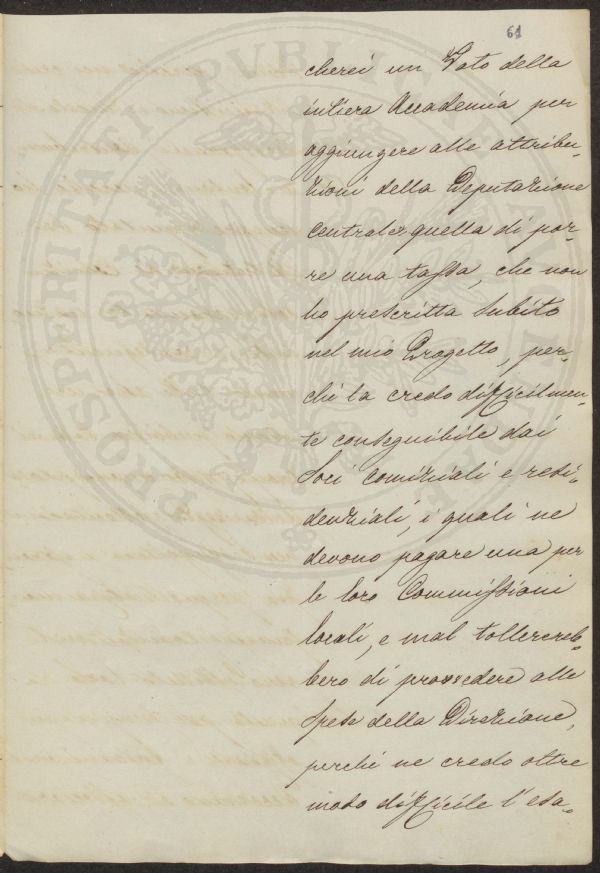 61
cherei un Voto della
intiera Accademia per
aggiungere alle attribu-
zioni della Deputazione
centrale, quella di por-
re una tassa, che non
ho prescritta subito
nel mio Progetto, per-
chè la credo difficilmen-
te conseguibile dai
Soci comiziali e resi-
denziali, i quali ne
devono pagare una per
le loro Commissioni
locali, e mal tollerereb-
bero di provvedere alle
spese della Direzione,
perchè ne credo oltre
modo difficile l'esa-
PROSPERITATI PVBLICAE AVGENDAE